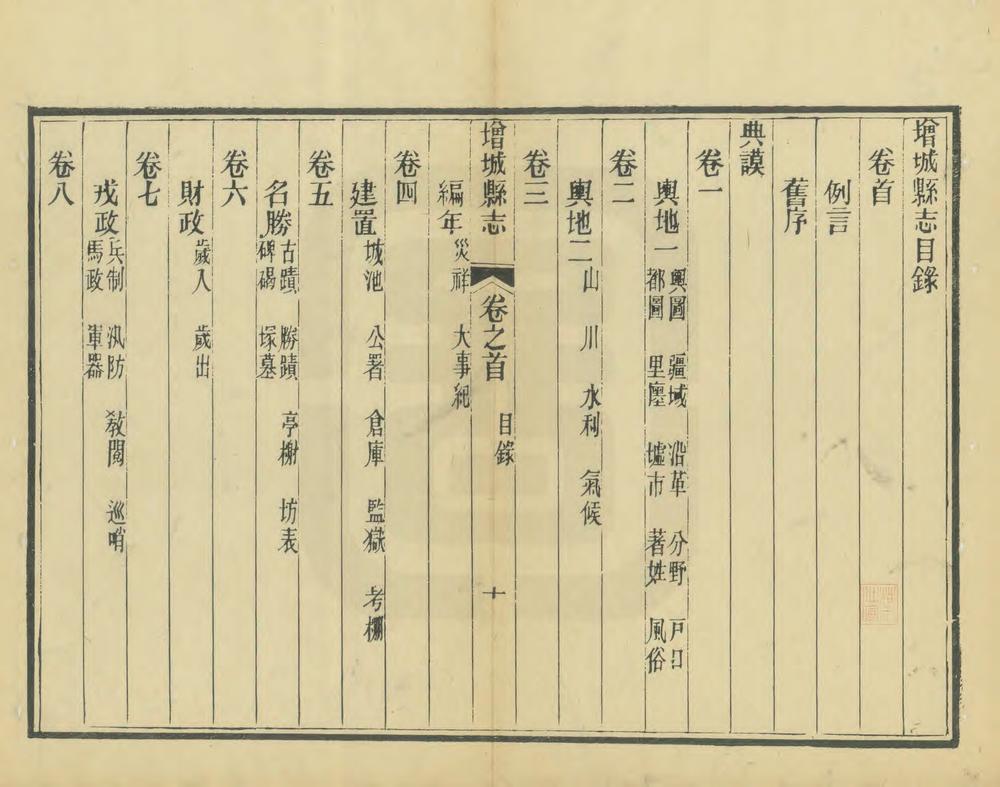 增城縣志目錄
卷首
例言
舊序
典謨
卷一
輿地一 輿圖 疆域 沿革 分野 戶口
都圖 里廛 墟市 著姓 風俗
卷二
輿地二 山 川 水利 氣候
卷三
增城縣志 卷之首 目錄 十
編年 災祥 大事紀
卷四
建置 城池 公署 倉庫 監獄 考棚
卷五
名勝 古蹟 勝蹟 亭榭 坊表
碑碣 塚墓
卷六
財政 歲入 歲出
卷七
戎政 兵制 汛防 敎閱 巡哨
馬政 軍器
卷八